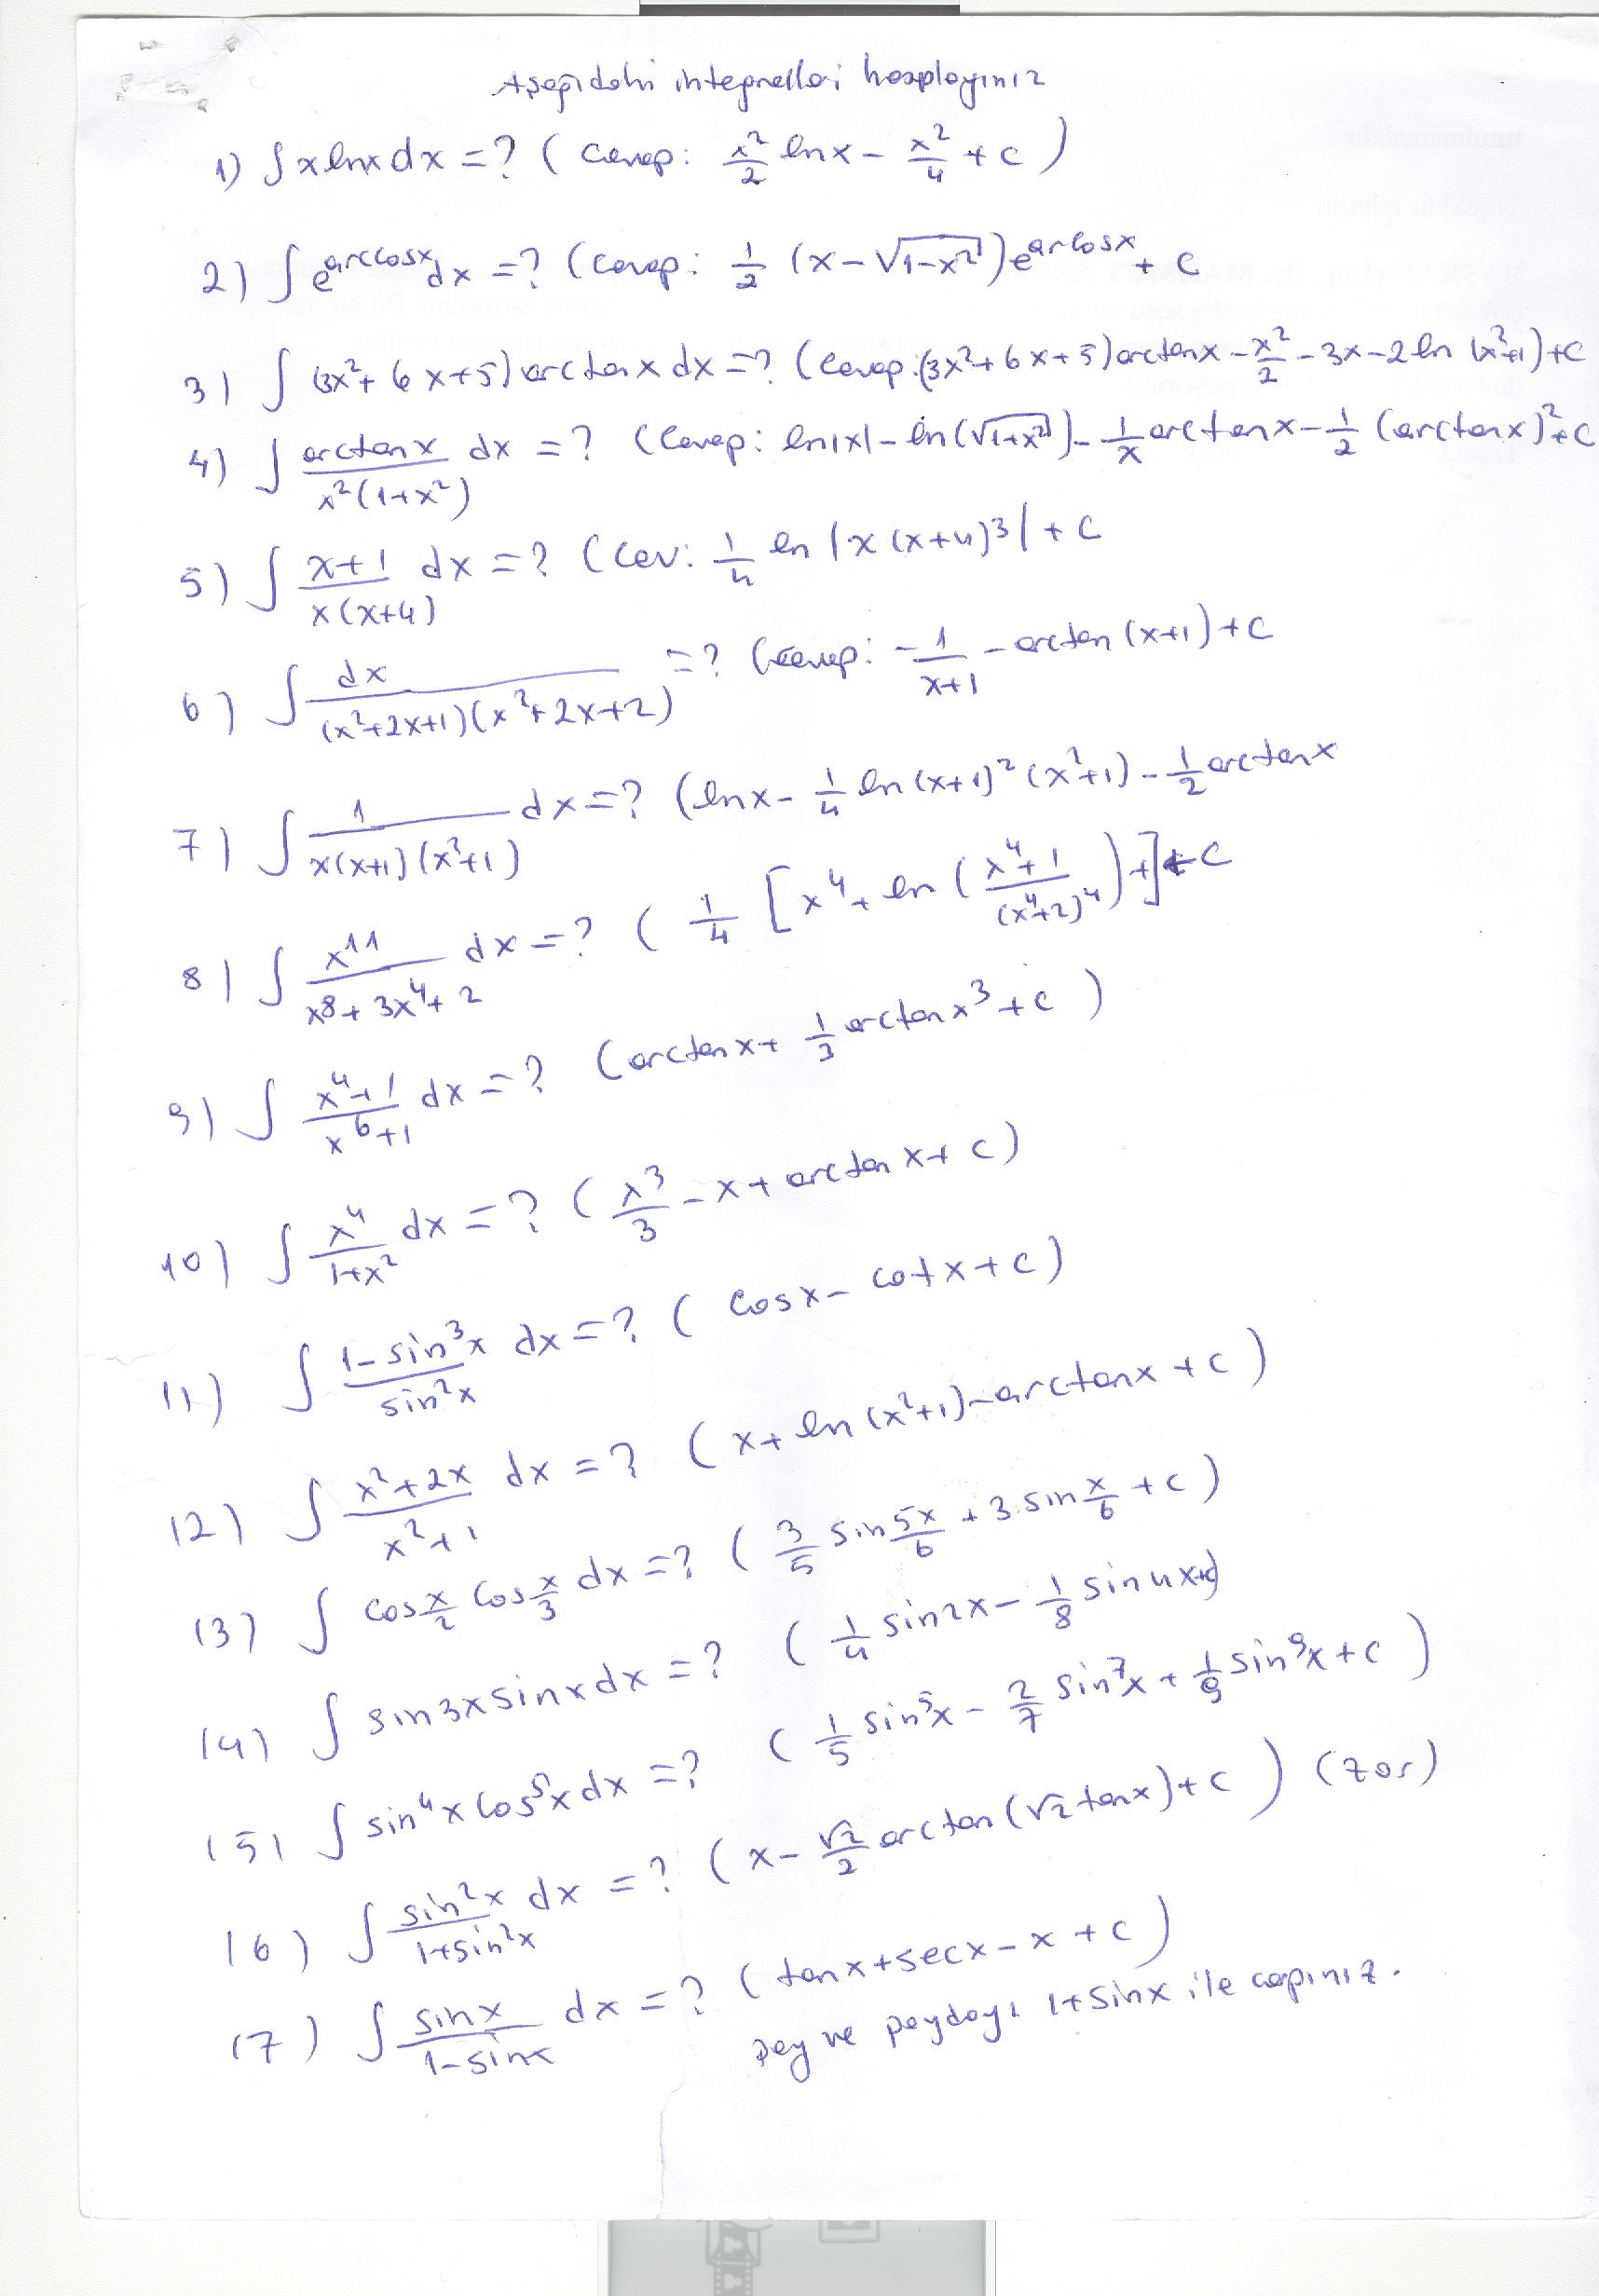 Aşağıdaki integralleri hesaplayınız
1) ∫ x lnx dx = ? ( Cevap: x²/2 lnx - x²/4 + c )
2) ∫ e^arccosx dx = ? ( Cevap: 1/2 (x - √(1-x²)) e^arcosx + c
3) ∫ (3x² + 6x + 5) arctanx dx = ? ( Cevap: (3x² + 6x + 5) arctanx - x²/2 - 3x - 2 ln (x²+1) + c
4) ∫ arctanx / x²(1+x²) dx = ? ( Cevap: ln|x| - ln(√(1+x²)) - 1/x arctanx - 1/2 (arctanx)² + c
5) ∫ x+1 / x(x+4) dx = ? ( Cev: 1/4 ln |x (x+4)³| + c
6) ∫ dx / (x²+2x+1)(x²+2x+2) = ? ( Cevap: - 1/x+1 - arctan (x+1) + c
7) ∫ 1 / x(x+1)(x²+1) dx = ? ( lnx - 1/4 ln (x+1)² (x²+1) - 1/2 arctanx
8) ∫ x¹¹ / x⁸ + 3x⁴ + 2 dx = ? ( 1/4 [ x⁴ + ln ( x⁴+1 / (x⁴+2)⁴ ) + ] + c
9) ∫ x⁴+1 / x⁶+1 dx = ? ( arctanx + 1/3 arctanx³ + c )
10) ∫ x⁴ / 1+x² dx = ? ( x³/3 - x + arctan x + c )
11) ∫ 1 - sin³x / sin²x dx = ? ( cosx - cotx + c )
12) ∫ x² + 2x / x² + 1 dx = ? ( x + ln (x²+1) - arctanx + c )
13) ∫ cos x/2 cos x/3 dx = ? ( 3/5 sin 5x/6 + 3.sin x/6 + c )
14) ∫ sin3x sinx dx = ? ( 1/4 sin2x - 1/8 sin4x+c)
15) ∫ sin⁴x cos⁵x dx = ? ( 1/5 sin⁵x - 2/7 sin⁷x + 1/9 sin⁹x + c )
16) ∫ sin²x / 1+sin²x dx = ? ( x - √2/2 arctan (√2 tanx) + c ) (zor)
17) ∫ sinx / 1-sinx dx = ? ( tanx + secx - x + c )
pay ve paydayı 1+sinx ile çarpınız.